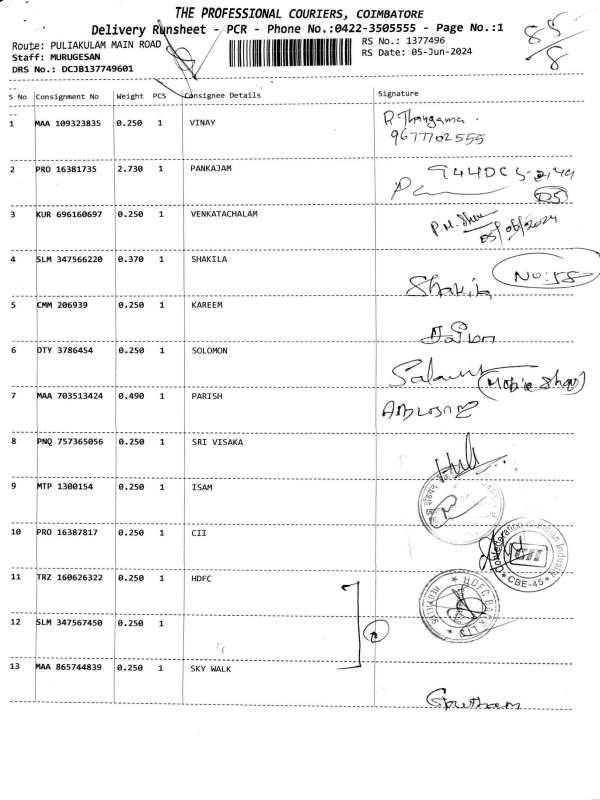 THE PROFESSIONAL COURIERS, COIMBATORE
Delivery Runsheet - PCR - Phone No.:0422-3505555 - Page No.:1
Route: PULIAKULAM MAIN ROAD
RS No.: 1377496
Staff: MURUGESAN
RS Date: 05-Jun-2024
DRS No.: DCJB137749601
S No Consignment No Weight PCS Consignee Details Signature
1 MAA 109323835 0.250 1 VINAY R. Thangama
9677702555
2 PRO 16381735 2.730 1 PANKAJAM
D5
3 KUR 696160697 0.250 1 VENKATACHALAM
05/06/2024
4 SLM 347566220 0.370 1 SHAKILA No:58
Shakila
5 CMM 206939 0.250 1 KAREEM
6 DTY 3786454 0.250 1 SOLOMON
Mobile Shop
7 MAA 703513424 0.490 1 PARISH
8 PNQ 757365056 0.250 1 SRI VISAKA
9 MTP 1300154 0.250 1 ISAM
10 PRO 16387817 0.250 1 CII
Confederation of Indian Industry
CII
* CBE-45 *
11 TRZ 160626322 0.250 1 HDFC
HDFC BANK LTD
12 SLM 347567450 0.250 1
13 MAA 865744839 0.250 1 SKY WALK
Goutham